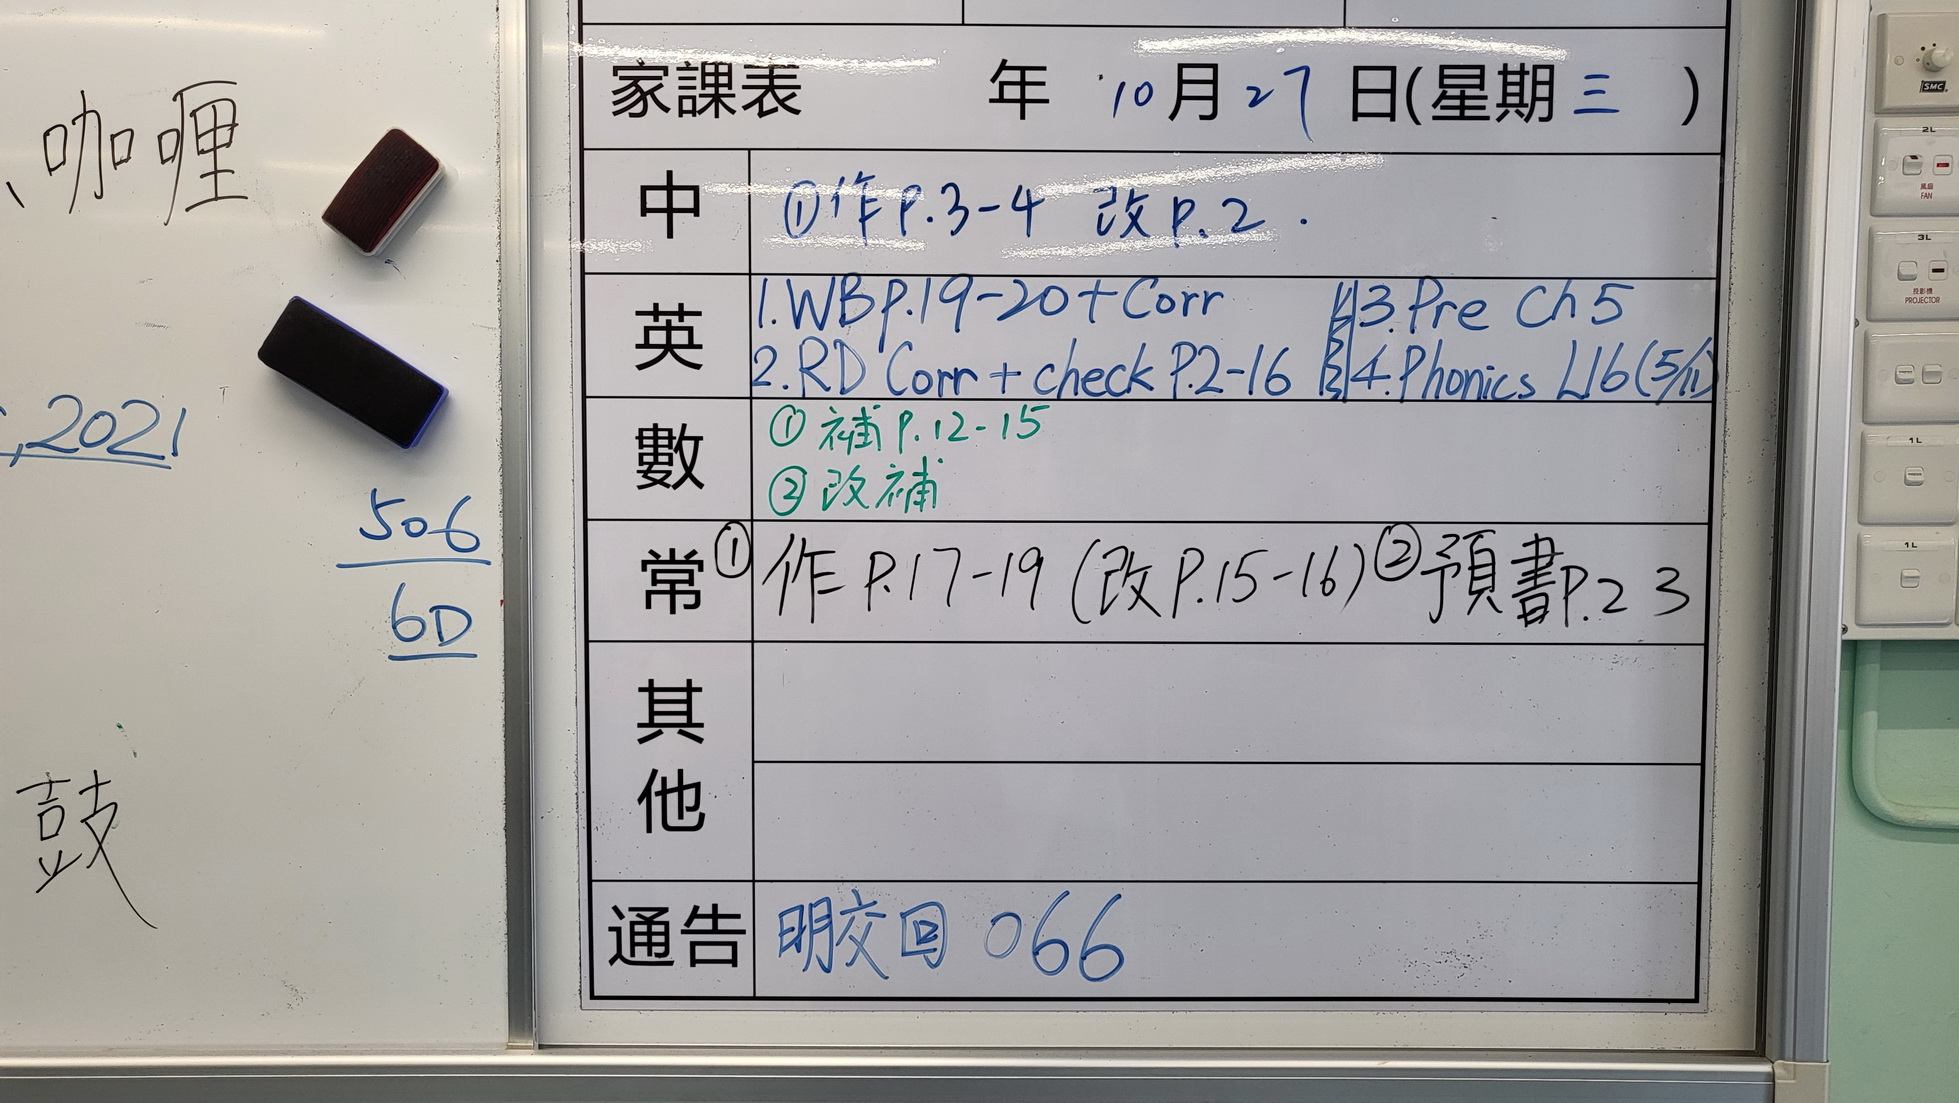 、咖喱
,2021
506
6D
鼓
家課表 年 10月27日(星期三)
中 ①作P.3-4 改P.2.
英 1.WBP.19-20+Corr 3.Pre Ch5
2.RD Corr+check P.2-16 4.Phonics L16(5/11)
數 ①補P.12-15
②改補
常 ①作P.17-19(改P.15-16)②預書P.23
其他
通告 明交回 066
SMC
2L
風扇
FAN
3L
投影機
PROJECTOR
1L
1L